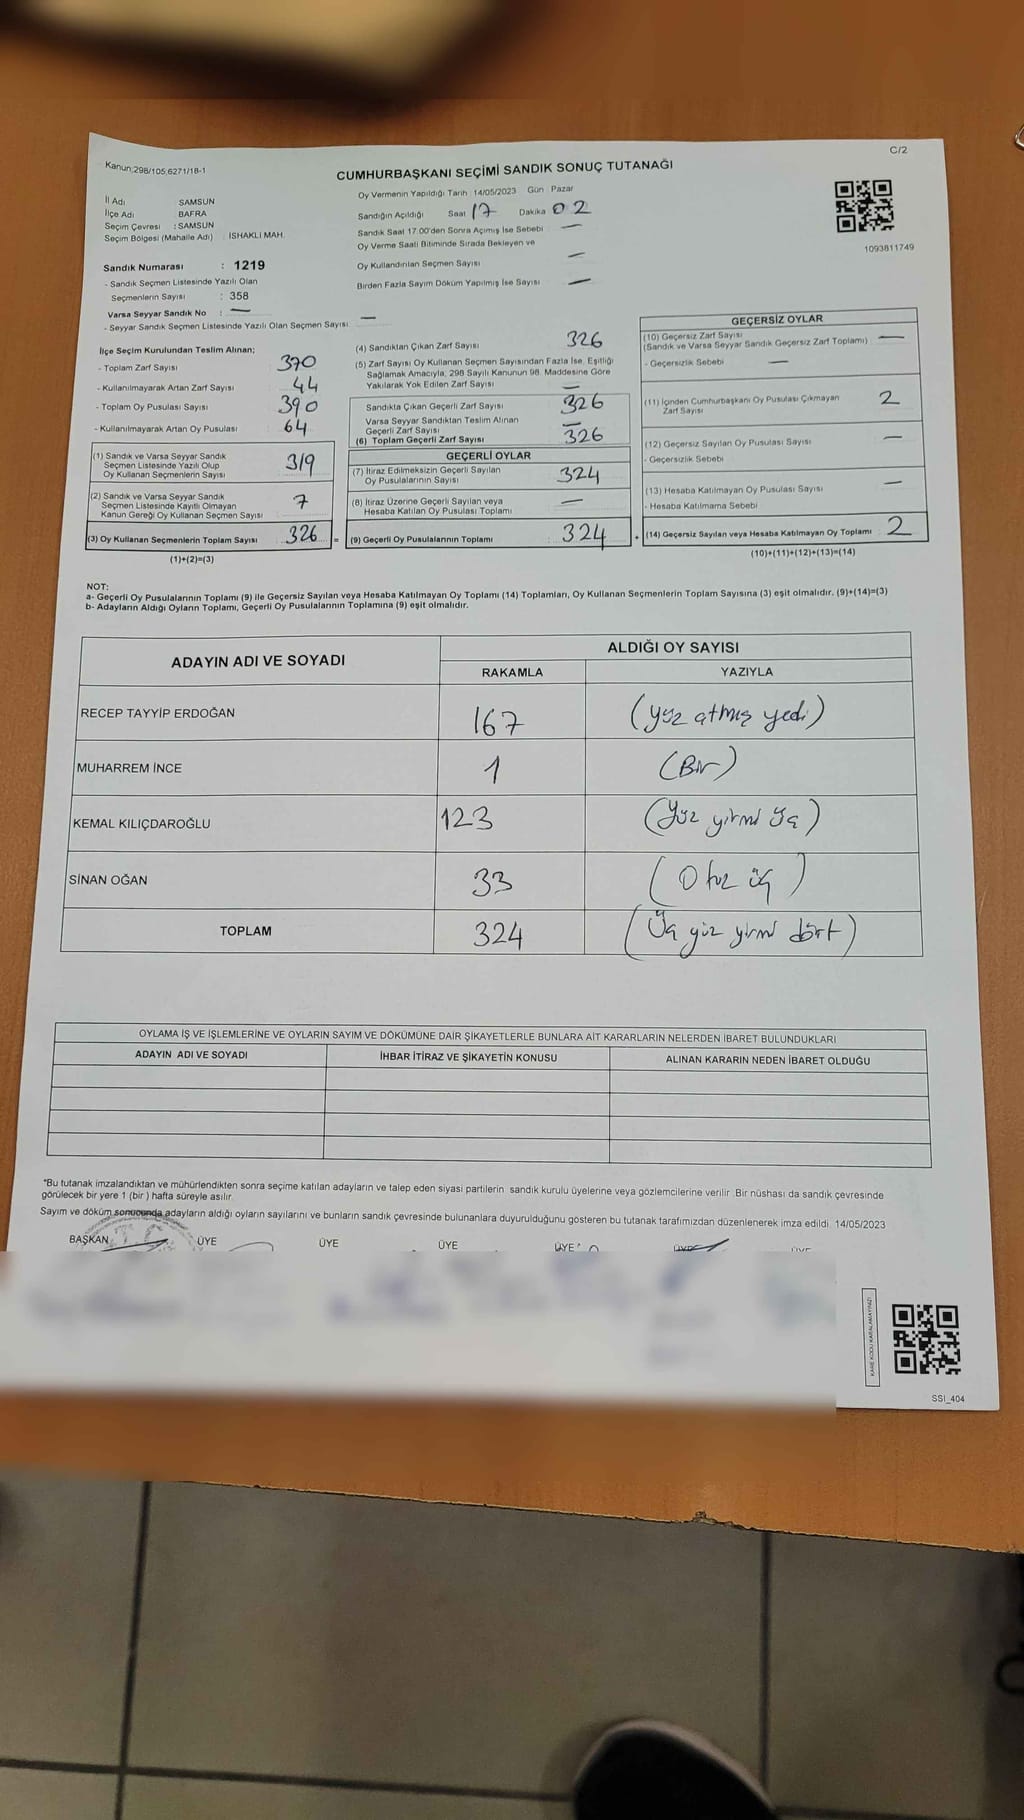 Kanun;298/105,6271/18-1
C/2
CUMHURBAŞKANI SEÇİMİ SANDIK SONUÇ TUTANAĞI
İl Adı SAMSUN
İlçe Adı BAFRA
Seçim Çevresi : SAMSUN
Seçim Bölgesi (Mahalle Adı) İSHAKLI MAH.
Oy Vermenin Yapıldığı Tarih 14/05/2023 Gün Pazar
Sandığın Açıldığı Saat 17 Dakika 02
Sandık Saat 17.00'den Sonra Açımış İse Sebebi —
Oy Verme Saati Bitiminde Sırada Bekleyen ve
Oy Kullandırılan Seçmen Sayısı —
Birden Fazla Sayım Döküm Yapılmış İse Sayısı —
1093811749
Sandık Numarası : 1219
- Sandık Seçmen Listesinde Yazılı Olan
Seçmenlerin Sayısı : 358
Varsa Seyyar Sandık No : —
- Seyyar Sandık Seçmen Listesinde Yazılı Olan Seçmen Sayısı: —
İlçe Seçim Kurulundan Teslim Alınan;
- Toplam Zarf Sayısı 370
- Kullanılmayarak Artan Zarf Sayısı 44
- Toplam Oy Pusulası Sayısı 390
- Kullanılmayarak Artan Oy Pusulası 64
(1) Sandık ve Varsa Seyyar Sandık
Seçmen Listesinde Yazılı Olup
Oy Kullanan Seçmenlerin Sayısı 319
(2) Sandık ve Varsa Seyyar Sandık
Seçmen Listesinde Kayıtlı Olmayan
Kanun Gereği Oy Kullanan Seçmen Sayısı 7
(3) Oy Kullanan Seçmenlerin Toplam Sayısı 326 =
(1)+(2)=(3)
(4) Sandıktan Çıkan Zarf Sayısı 326
(5) Zarf Sayısı Oy Kullanan Seçmen Sayısından Fazla İse, Eşitliği
Sağlamak Amacıyla, 298 Sayılı Kanunun 98. Maddesine Göre
Yakılarak Yok Edilen Zarf Sayısı —
Sandıkta Çıkan Geçerli Zarf Sayısı 326
Varsa Seyyar Sandıktan Teslim Alınan
Geçerli Zarf Sayısı —
(6) Toplam Geçerli Zarf Sayısı 326
GEÇERLİ OYLAR
(7) İtiraz Edilmeksizin Geçerli Sayılan
Oy Pusulalarının Sayısı 324
(8) İtiraz Üzerine Geçerli Sayılan veya
Hesaba Katılan Oy Pusulası Toplamı —
(9) Geçerli Oy Pusulalarının Toplamı : 324 +
GEÇERSİZ OYLAR
(10) Geçersiz Zarf Sayısı
(Sandık ve Varsa Seyyar Sandık Geçersiz Zarf Toplamı) —
- Geçersizlik Sebebi —
(11) İçinden Cumhurbaşkanı Oy Pusulası Çıkmayan
Zarf Sayısı 2
(12) Geçersiz Sayılan Oy Pusulası Sayısı —
- Geçersizlik Sebebi
(13) Hesaba Katılmayan Oy Pusulası Sayısı —
- Hesaba Katılmama Sebebi
(14) Geçersiz Sayılan veya Hesaba Katılmayan Oy Toplamı 2
(10)+(11)+(12)+(13)=(14)
NOT:
a- Geçerli Oy Pusulalarının Toplamı (9) ile Geçersiz Sayılan veya Hesaba Katılmayan Oy Toplamı (14) Toplamları, Oy Kullanan Seçmenlerin Toplam Sayısına (3) eşit olmalıdır. (9)+(14)=(3)
b- Adayların Aldığı Oyların Toplamı, Geçerli Oy Pusulalarının Toplamına (9) eşit olmalıdır.
ADAYIN ADI VE SOYADI
ALDIĞI OY SAYISI
RAKAMLA YAZIYLA
RECEP TAYYİP ERDOĞAN 167 (yüz atmış yedi)
MUHARREM İNCE 1 (Bir)
KEMAL KILIÇDAROĞLU 123 (Yüz yirmi üç)
SİNAN OĞAN 33 (Otuz üç)
TOPLAM 324 (Üç yüz yirmi dört)
OYLAMA İŞ VE İŞLEMLERİNE VE OYLARIN SAYIM VE DÖKÜMÜNE DAİR ŞİKAYETLERLE BUNLARA AİT KARARLARIN NELERDEN İBARET BULUNDUKLARI
ADAYIN ADI VE SOYADI İHBAR İTİRAZ VE ŞİKAYETİN KONUSU ALINAN KARARIN NEDEN İBARET OLDUĞU
*Bu tutanak imzalandıktan ve mühürlendikten sonra seçime katılan adayların ve talep eden siyasi partilerin sandık kurulu üyelerine veya gözlemcilerine verilir. Bir nüshası da sandık çevresinde
görülecek bir yere 1 (bir) hafta süreyle asılır.
Sayım ve döküm sonucunda adayların aldığı oyların sayılarını ve bunların sandık çevresinde bulunanlara duyurulduğunu gösteren bu tutanak tarafımızdan düzenlenerek imza edildi. 14/05/2023
BAŞKAN ÜYE ÜYE ÜYE ÜYE ÜYE ÜYE
KARE KODU KARALAMAYINIZ!
SSİ_404